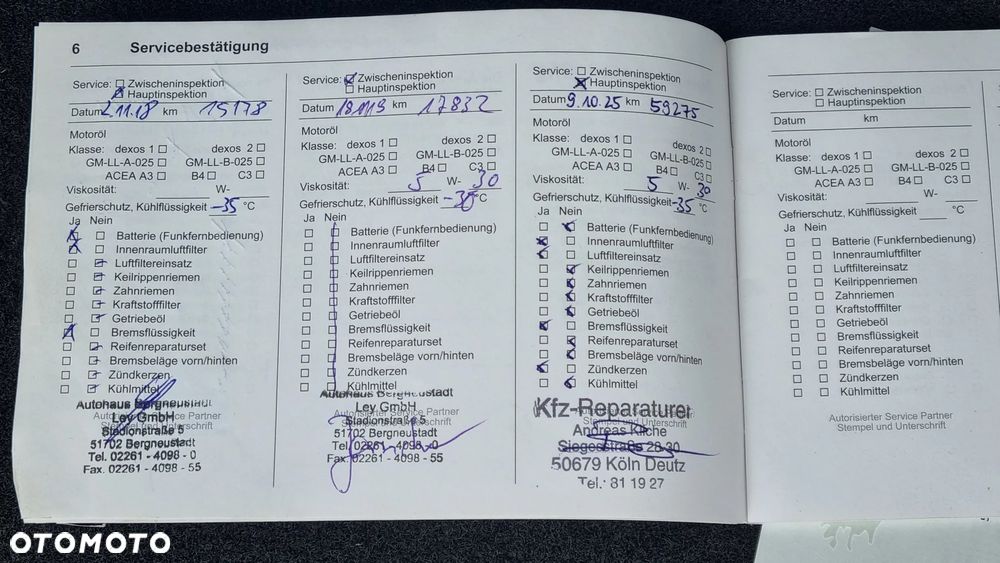 6 Servicebestätigung
Service: Zwischeninspektion
Hauptinspektion
Datum 2.11.18 km 15178
Motoröl
Klasse: dexos 1 dexos 2
GM-LL-A-025 GM-LL-B-025
ACEA A3 B4 C3
Viskosität: W-
Gefrierschutz, Kühlflüssigkeit -35 °C
Ja Nein
Batterie (Funkfernbedienung)
Innenraumluftfilter
Luftfiltereinsatz
Keilrippenriemen
Zahnriemen
Kraftstofffilter
Getriebeöl
Bremsflüssigkeit
Reifenreparaturset
Bremsbeläge vorn/hinten
Zündkerzen
Kühlmittel
Autohaus Bergneustadt
Autorisierter Service Partner
Ley GmbH
Stempel und Unterschrift
Stadionstraße 5
51702 Bergneustadt
Tel. 02261 - 4098 - 0
Fax. 02261 - 4098 - 55
Service: Zwischeninspektion
Hauptinspektion
Datum km 17832
Motoröl
Klasse: dexos 1 dexos 2
GM-LL-A-025 GM-LL-B-025
ACEA A3 B4 C3
Viskosität: 5 W- 30
Gefrierschutz, Kühlflüssigkeit -35 °C
Ja Nein
Batterie (Funkfernbedienung)
Innenraumluftfilter
Luftfiltereinsatz
Keilrippenriemen
Zahnriemen
Kraftstofffilter
Getriebeöl
Bremsflüssigkeit
Reifenreparaturset
Bremsbeläge vorn/hinten
Zündkerzen
Kühlmittel
Autohaus Bergneustadt
Autorisierter Service Partner
Ley GmbH
Stempel und Unterschrift
Stadionstraße 5
51702 Bergneustadt
Tel. 02261 - 4098 - 0
Fax. 02261 - 4098 - 55
Service: Zwischeninspektion
Hauptinspektion
Datum 9.10.25 km 59275
Motoröl
Klasse: dexos 1 dexos 2
GM-LL-A-025 GM-LL-B-025
ACEA A3 B4 C3
Viskosität: 5 W- 30
Gefrierschutz, Kühlflüssigkeit -35 °C
Ja Nein
Batterie (Funkfernbedienung)
Innenraumluftfilter
Luftfiltereinsatz
Keilrippenriemen
Zahnriemen
Kraftstofffilter
Getriebeöl
Bremsflüssigkeit
Reifenreparaturset
Bremsbeläge vorn/hinten
Zündkerzen
Kühlmittel
Kfz-Reparaturen
Andreas Kliche
50679 Köln Deutz
Tel.: 81 19 27
Service: Zwischeninspektion
Hauptinspektion
Datum km
Motoröl
Klasse: dexos 1 dexos 2
GM-LL-A-025 GM-LL-B-025
ACEA A3 B4 C3
Viskosität: W-
Gefrierschutz, Kühlflüssigkeit °C
Ja Nein
Batterie (Funkfernbedienung)
Innenraumluftfilter
Luftfiltereinsatz
Keilrippenriemen
Zahnriemen
Kraftstofffilter
Getriebeöl
Bremsflüssigkeit
Reifenreparaturset
Bremsbeläge vorn/hinten
Zündkerzen
Kühlmittel
Autorisierter Service Partner
Stempel und Unterschrift
OTOMOTO